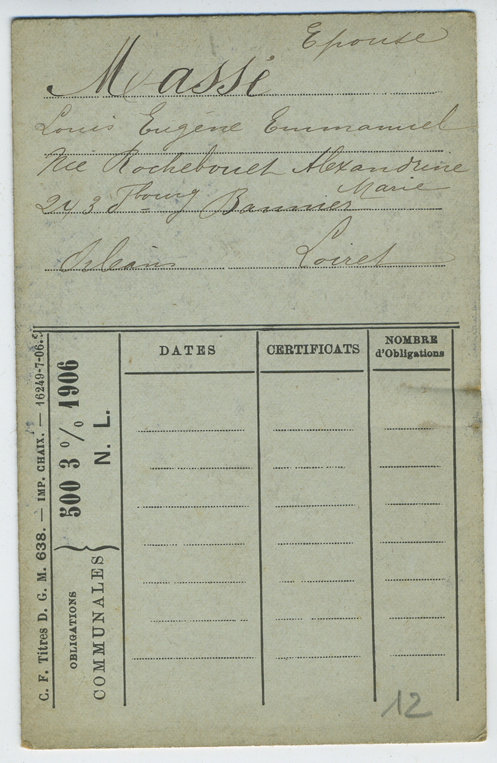 Epouse
Massé
Louis Eugène Emmanuel
Née Rochebouet Alexandrine
Marie
243 Fbourg Bannier
Orléans Loiret
DATES
CERTIFICATS
NOMBRE
d'Obligations
C. F. Titres D. G. M. 638. — IMP. CHAIX. — 16249-7-06.
OBLIGATIONS
COMMUNALES
500 3 % 1906
N. L.
12